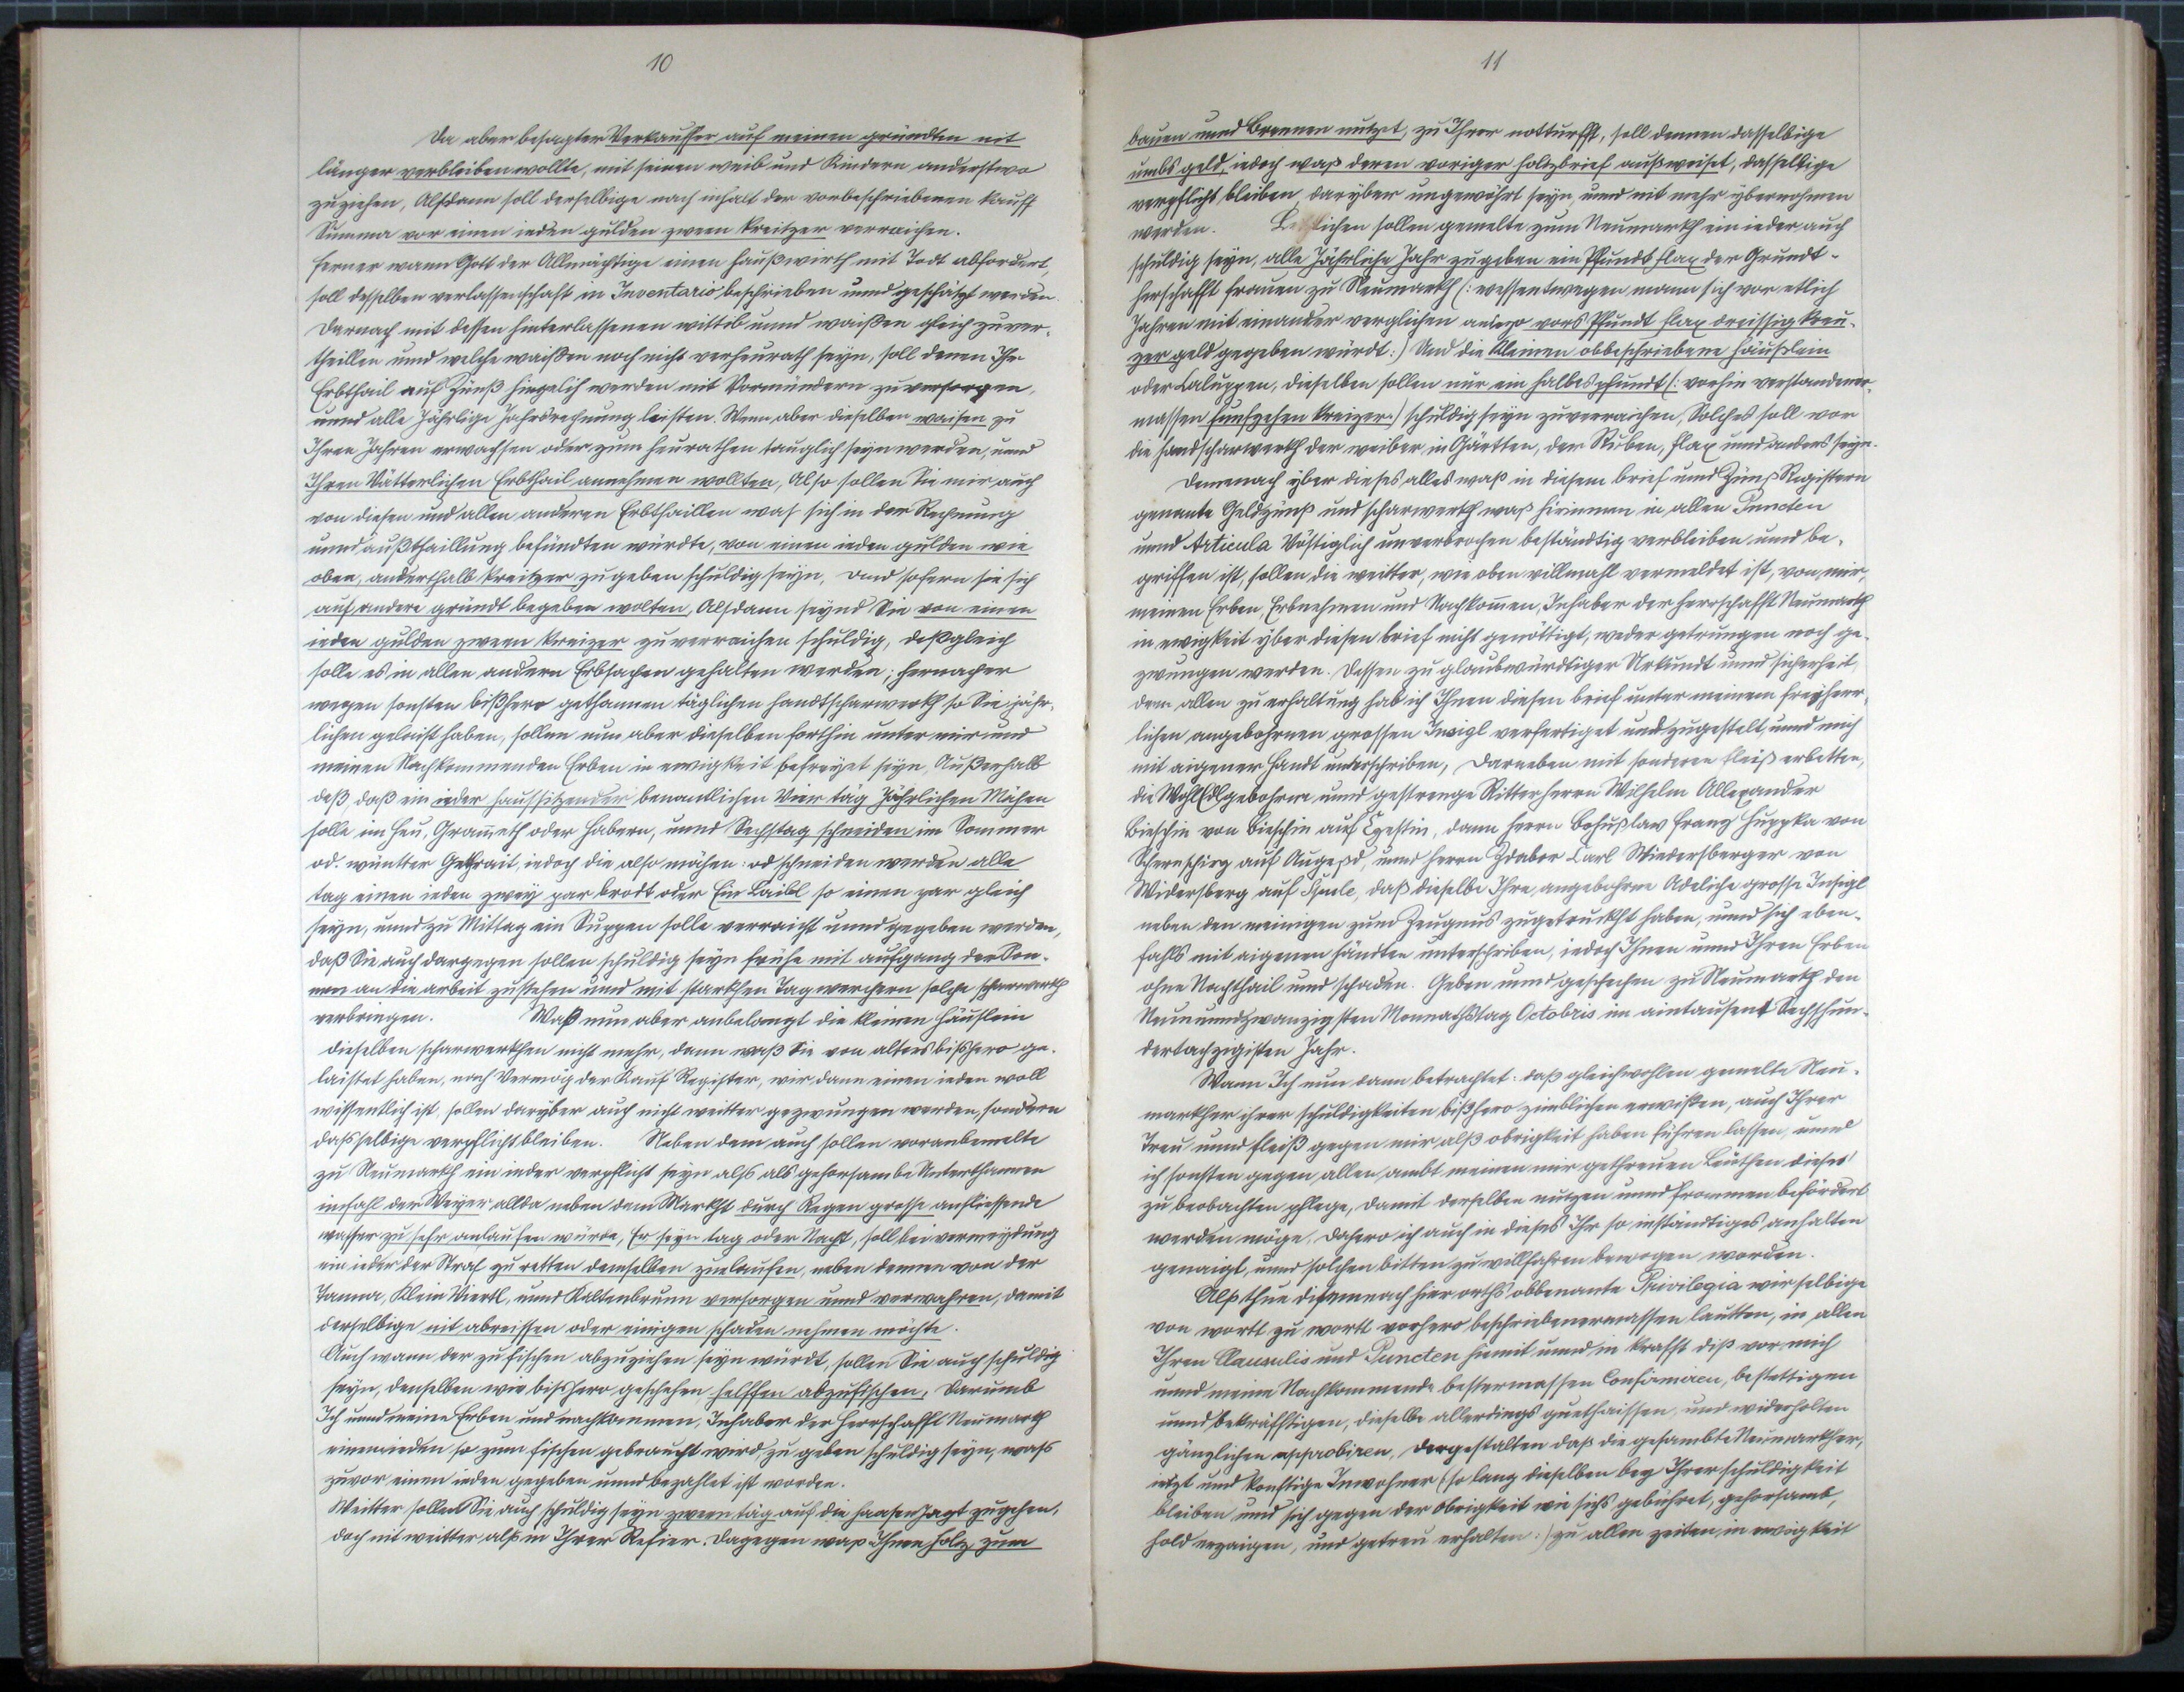 10
Da aber besagter Verkauffer auf meinen gründten nit
länger verbleiben wollte, mit seinen weib und Kindern anderstwo
zuziehen, Alsdann soll derselbige nach inhalt der vorbeschriebenen kauff
Summa vor einen ieden gulden zween kreitzer verreichen.
Ferner wann Gott der Allmächtige einen haußwirth mit Todt abfordert,
soll desselben verlassenschaft in Inventario beschrieben unnd geschätzt werden.
Darnach mit dessen hinterlassenen wittib unnd waißen gleich zuver-
theillen unnd welche waißen noch nicht verheurath seyn, soll denen Ihr
Erbtheil auf Zünß hingelich werden mit Vormündern zu versorgen,
unnd alle Jährlige Jahrsrechnung leisten. Wenn aber dieselben waisen zu
Ihren Jahren erwachsen oder zum heurathen tauglich seyn werden, unnd
Ihren Vätterlichen Erbtheil annehmen wollten, Also sollen Sie mir auch
von diesen und allen anderen Erbtheillen was sich in der Rechnung
unnd außtheillung befündten würdte, von einen ieden gulden wie
oben, anderthalb kreitzer zugeben schuldig seyn, und sofern sie sich
auf andere gründt begeben wolten, Alsdann seynd Sie von einen
ieden gulden zween kreizer zuverreichen schuldig, deßgleich
solle es in allen andern Erbsachen gehalten werden; hernacher
wegen sonsten bißhero gethannen täglichen handtscharwerkh so Sie jähr-
lichen geleist haben, sollen nun aber dieselben forthin unter mir und
meinen Nachkommenden Erben in ewigkeit befreyet seyn, Außerhalb
deß daß ein ieder haussitzender benantlichen Vier täg Jährlichen Mähen
solle im heu, Gram̄eth oder habern, unnd Sechstag schneiden im Sommer
od. wüntter Gethrait, iedoch die also mähen: od schneiden werden alle
tag einen ieden zwey par brodt oder Ein Laibl so einen par gleich
seyn, unnd zu Mittag ein Suppen solle verreicht unnd gegeben werden,
daß Sie auch dargegen sollen schuldig seyn frühe mit aufgang der Son-
nen an die arbeit zustehen unnd mit starkhen Tagwerchern solche scharwerkh
verbringen. Waß nun aber anbelangt die kleinen häuslein
dieselben scharwerkhen nicht mehr, dann waß Sie von alters bißhero ge-
laistet haben, nach Vermög der Kauf Register, wir dann einen ieden woll
wissentlich ist, sollen darÿber auch nicht weitter gezwungen werden, sondern
dasselbige verpflicht bleiben. Neben dem auch sollen voranbemelte
zu Neumarkh ein ieder verpflicht seyn alß als gehorsambe Unterthannen
imfahl der Weyer allda neben dem Markht durch Regen grosse anfliessende
wasser zu sehr anlaufen würde, Er seyn tag oder Nacht, soll bei vermeydung
ein ieder der Straf zu retten demselben zuelaufen, neben dennen von der
Tanna, Klein Viertl, unnd Kaltenbrunn versorgen unnd verwahren, damit
derselbige nit abreissen oder einigen schaden nehmen möchte.
Auch wann der zu fischen abzuziehen seyn würdt, sollen Sie auch schuldig
seyn, denselben wie bißhero geschehen helffen abzufischen, Darumb
Ich unnd meine Erben und nachkommen, Inhaber der Herrschafft Neumarkh
einem ieden so zum fischen gebraucht wird zu geben schuldig seyn, wass
zuvor einen ieden gegeben unnd bezahlet ist worden.
Weitter sollen Sie auch schuldig seyn zween täg auf die hasen Jagt zugehen,
doch nit weitter alß in Ihrer Refier. Dagegen waß Ihnen holtz zum
11
bauen unnd Brennen nutzet, zu Ihrer notturfft, soll dennen dasselbige
umbs geld, iedoch waß deren voriger holtzbrief außweiset, dasselbige
verpflicht bleiben darÿber ungewöhrt seyn, unnd nit mehr ybernohmen
werden. Letzlichen sollen gemelte zum Neumarkh ein ieder auch
schuldig seyn, alle Jährliche Jahr zugeben ein Pfundt flax der Grundt-
herschafft frauen zu Neumarkh (: wessentwegen mann sich vor etlich
Jahren mit einander verglichen anjezo vors Pfundt flax dreissig kreu-
zer geld gegeben würdt:) Und die kleinen obbeschriebene häußlein
oder Caluppen, dieselben sollen nur ein halbes pfundt (: vorhin verstandener-
massen funfzehen kreizer:) schuldig seyn zuverraichen, Solches soll vor
die handscharwerkh der weiber, in Gärtten, der Ruben, flax unnd anders seyn.
Demenach yber dieses alles waß in diesem brief unnd Zünß Registern
genante Geldzünß und scharwerkh waß hirinnen in allen Puncten
unnd Articula Vöstiglich unverbrochen beständig verbleiben unnd be-
griffen ist, sollen die weitter, wie oben villmahl vermeldet ist, von mir,
meinen Erben, Erbnehmen und Nachkom̄en, Inhaber der herrschafft Neumarkh
in ewigkeit ÿber diesen brief nicht genöttigt, weder getrungen noch ge-
zwungen werden. Dessen zu glaubwürdtiger Urkundt unnd sicherheit
dem allen zu erhaltung hab ich Ihnen diesen brief unter meinem freyherr-
lichen angebohrnen grossen Insigl verfertiget und zugestelt, unnd mich
mit aigener handt underschriben, Darneben mit sonderen fleiß erbetten,
die WohlEdlgebohrne unnd gestrenge Ritter herrn Wilhelm Allexander
Bieschin von Bieschin auf Czestin, dann herrn Bohußlaw Franz Huppka von
auf Augezd, unnd herrn Zdaber Carl Wiedersberger von
Widersberg auf Spule, daß dieselbe Ihre angebohrne Adeliche grosse Insigl
neben den meinigen zum Zeugnus zugetruckht haben, unnd sich eben-
fahls mit aigenen händten unterschriben, iedoch Ihnen unnd Ihren Erben
ohne Nachtheil und schaden. Geben unnd geschehen zu Neumarkh den
Neun unndzwanzigsten Monnathstag Octobris im aintausent Sechshun-
dertachzigisten Jahr.
Wann Ich nun dann betrachtet: daß gleichwohlen gemelte Neu-
markher ihrer schuldigkeiten bißhero zimblichen erwißen, auch Ihrer
Treu unnd fleiß gegen mir alß obrigkeit haben führen lassen, unnd
ich sonsten gegen allen, ambt meinen mir gethreuen Leuthen dieses
zu beobachten pflege, damit derselben nutzen unnd frommen befördert
werden möge, Dahero ich auch in dieses Ihr so inständtiges anhalten
genaigt, unnd solchen bitten zu willfahren bewogen worden.
Alß thue disemnach hier orths obbenante Privilegia wie selbige
von wortt zu wortt vorhero beschriebenermassen lautten, in allen
Ihren Clausulis und Puncten hiemit unnd in krafft diß vor mich
unnd meine Nachkommende bestermassen Confirmiren, bestettigen
unnd bekräfftigen, dieselbe allerdings guethaissen, und widerholten
gänzlichen approbiren, dergestalten daß die gesambte Neumarkher,
ietzt und konftige Inwohner (: so lang dieselben bey Ihrer schuldigkeit
bleiben und sich gegen der obrigkeit wie sichs gebühret, gehorsamb,
hold erzaigen, und getreu erhalten:) zu allen zeiten, in ewigkeit